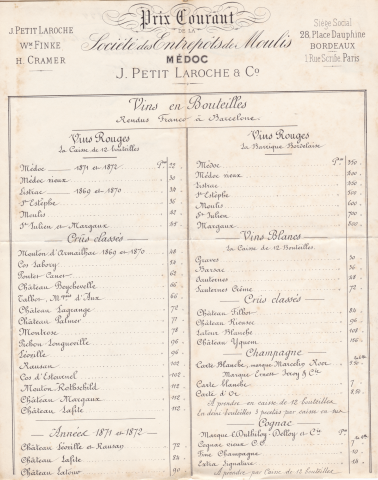 Prix Courant
DE LA
Société des Entrepôts de Moulis
MÉDOC
J. PETIT LAROCHE & Co
J. PETIT LAROCHE
Wm FINKE
H. CRAMER
Siège Social
28, Place Dauphine
BORDEAUX
1 Rue Scribe, Paris.
Vins en Bouteilles
Rendus Franco à Barcelone.
Vins Rouges
La Caisse de 12 bouteilles
Médoc 1871 et 1872 22
Médoc vieux 30
Listrac 1869 et 1870
St Estèphe 36
Moulis
St Julien et Margaux
Crûs classés
Mouton d'Armailhac 1869 et 1870 48
Cos Labory
Pontet Canet 62
Château Beychevelle 66
Talbot Mquis d'Aux 66
Château Lagrange 70
Château Palmer 77
Montrose 78
Pichon Longueville
Léoville
Rausan 102
Cos d'Estournel 102
Mouton Rothschild 112
Château Margaux 112
Château Lafite 112
Année 1871 et 1872
Léoville et Rausan 72
Château Lafite 84
Château Latour 90
Vins Rouges
La Barrique Bordelaise
Médoc
Médoc vieux
Listrac
St Estèphe 500
Moulis
St Julien
Margaux 800
Vins Blancs
La Caisse de 12 Bouteilles.
Graves 30
Barsac 36
Sauternes 48
Sauternes Crême 72
Crûs classés
Château Filhot
Château Rieussec 96
Latour Blanche 108
Château Yquem
Champagne
Carte Blanche, marque Marcelin Koor
Marque Ernest Irroy & Cie
Carte blanche 7
Carte d'Or
À prendre en caisse de 12 bouteilles
Cognac
Cognac vieux 7
Fine Champagne 10
Extra Signature
À prendre par Caisse de 12 bouteilles.